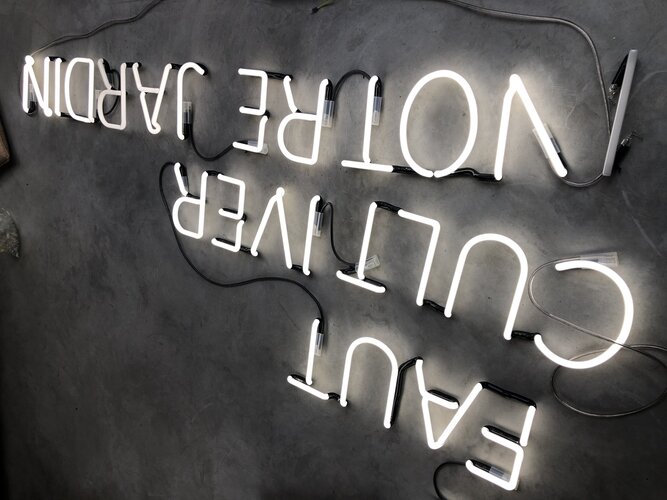 FAUT
CULTIVER
VOTRE JARDIN